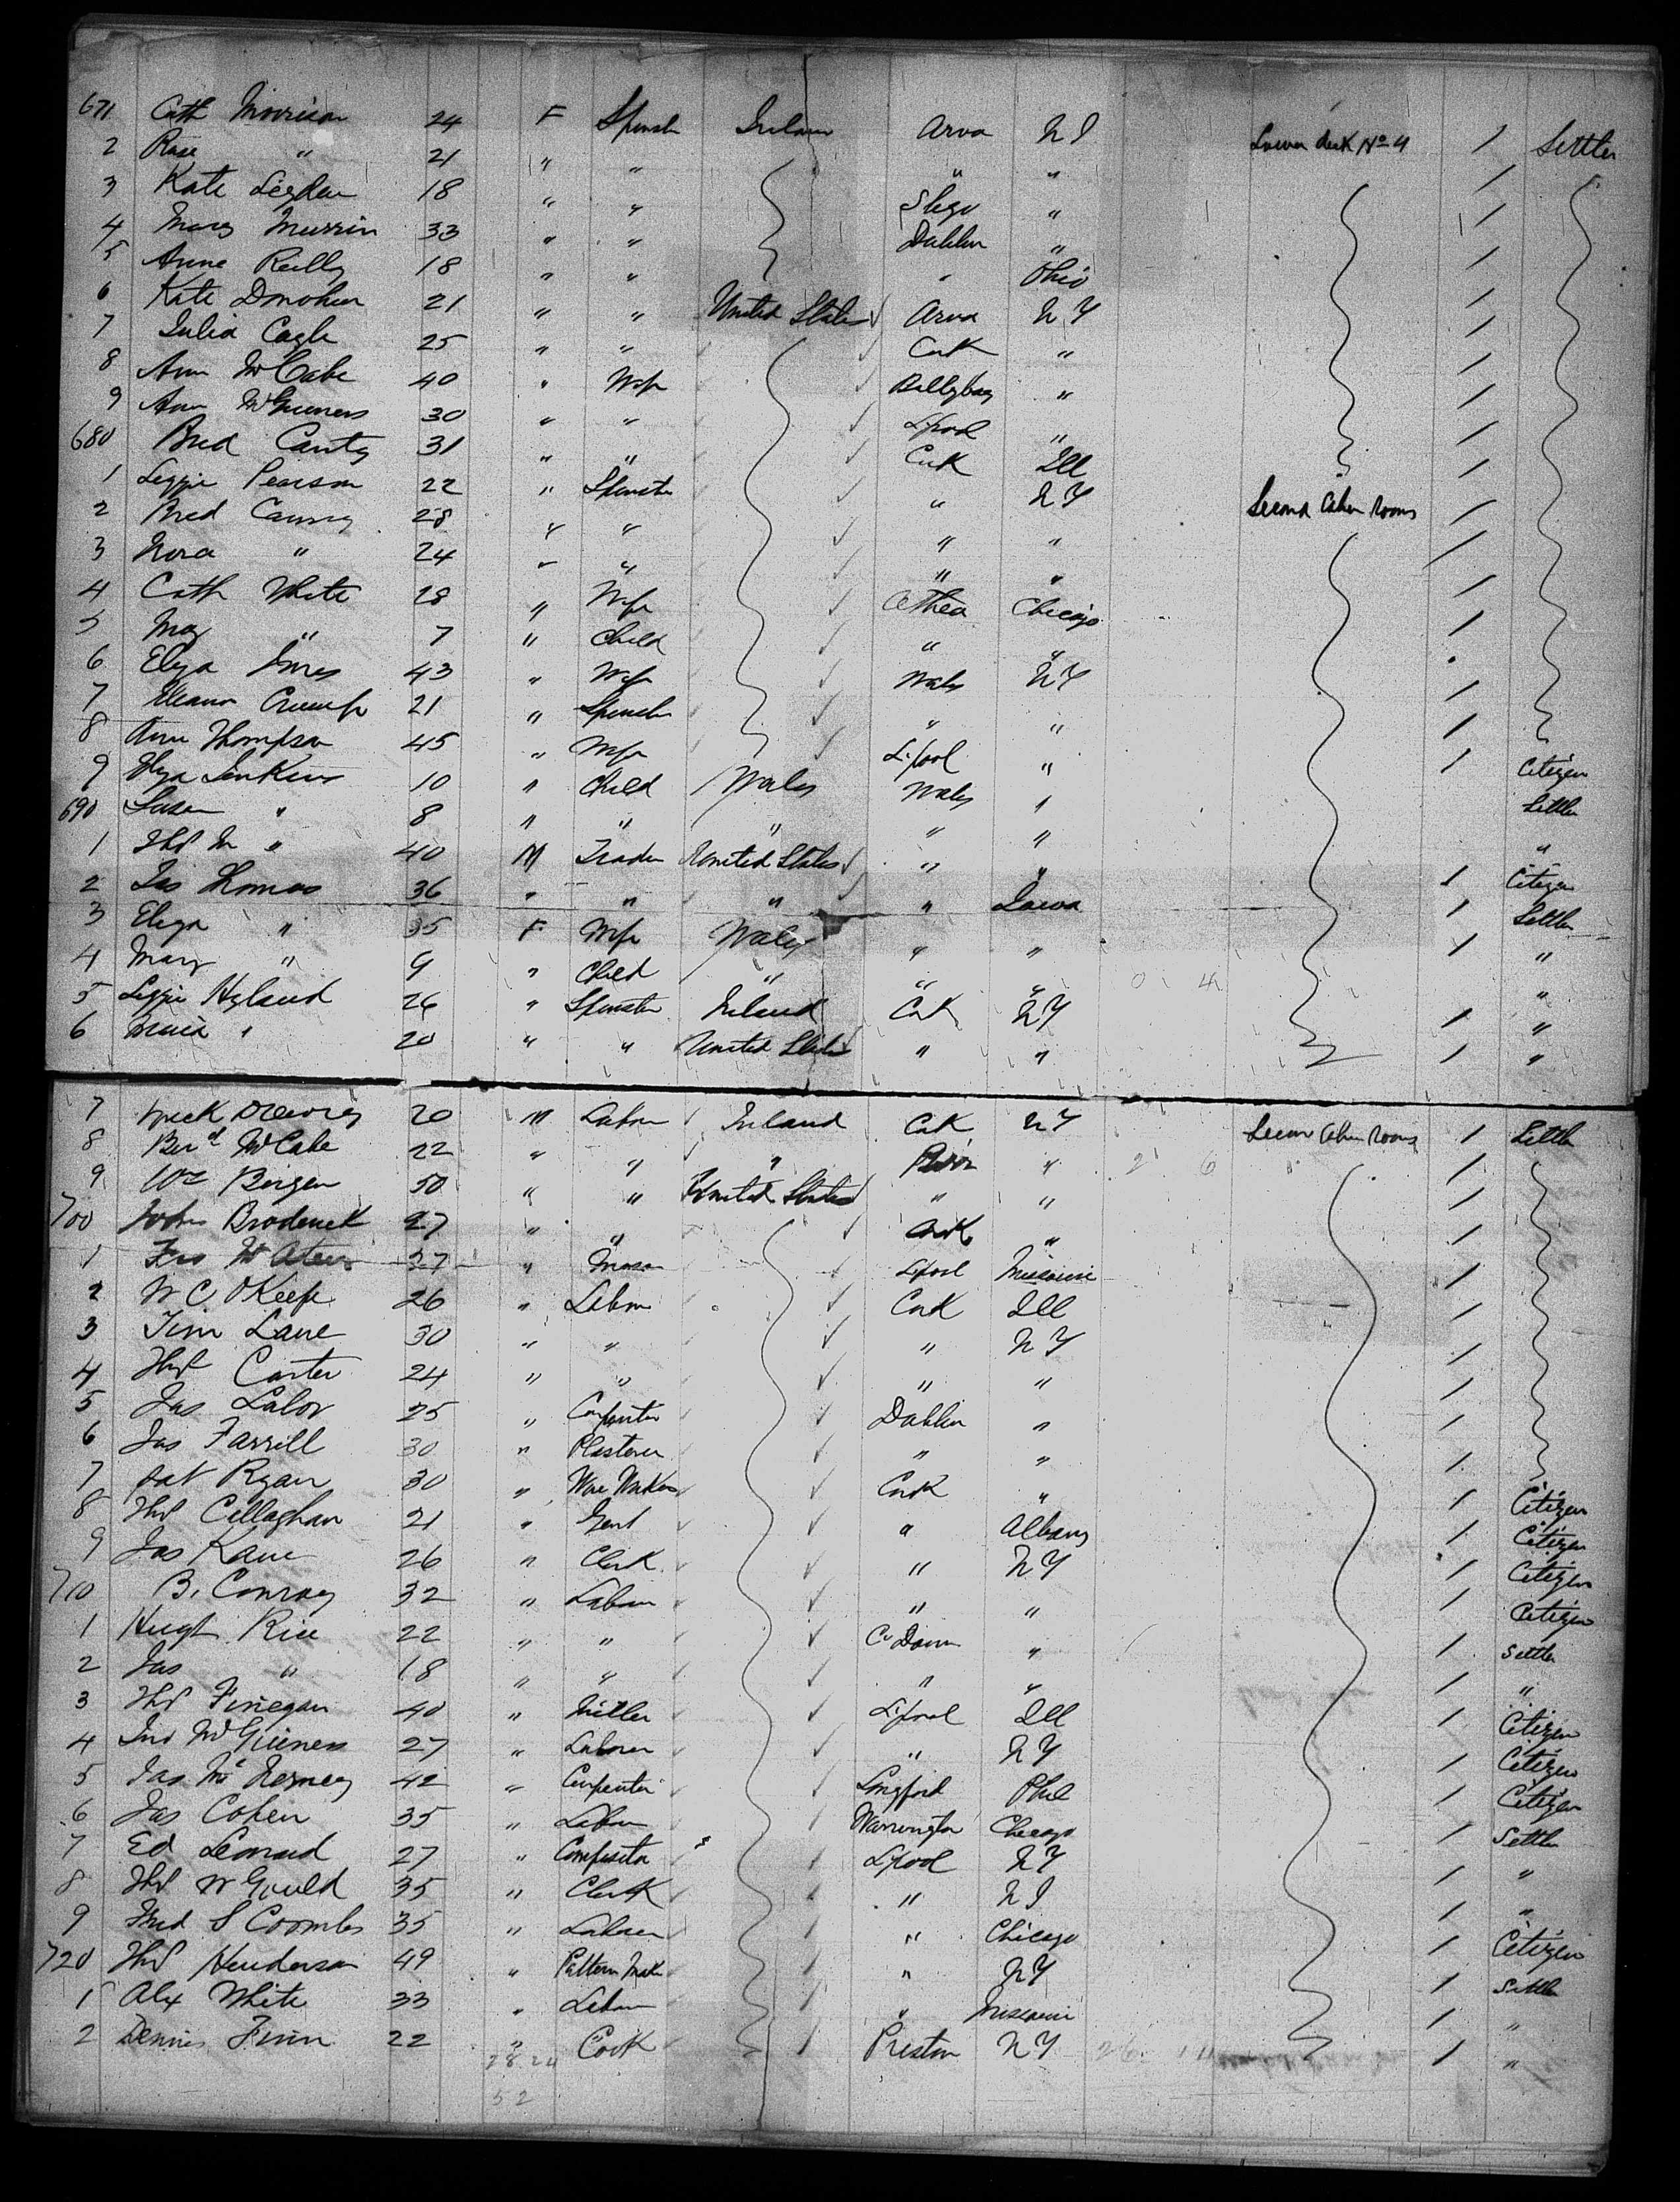 671 Cath Morrison 24 F Spinster Ireland Arva N J Lower deck No 4 / Settler
2 Rose " 21 " " " " /
3 Kate 18 " " Sligo " /
4 Mary Murrin 33 " " Dublin " /
5 Anne Reilly 18 " " " Ohio /
6 Kate Donohue 21 " " United States Arva N Y /
7 Julia Cagle 25 " " Cork " /
8 Ann McCabe 40 " Wife Ballybay " /
9 Ann McGuiness 30 " " Lpool " /
680 Brid Canty 31 " " Cork Ill /
1 Lizzie Pearson 22 " Spinster " N Y Second Cabin Rooms /
2 Brid 28 " " " " /
3 Nora " 24 " " " " /
4 Cath White 28 " Wife Athea Chicago /
5 May " 7 " Child " "
6 Eliza 43 " Wife Wales N Y /
7 Eleanor Crump 21 " Spinster " " /
8 Ann Thompson 45 " Wife L'pool " / Citizen
9 Eliza Jenkins 10 " Child Wales Wales " Settler
690 Susan " 8 " " " " " "
1 Thos M " 40 M Trader United States " " / Citizen
2 Jas Thomas 36 " " " " Iowa / Settler
3 Eliza " 35 F Wife Wales " " / "
4 Mary " 9 " Child " " " "
5 Lizzie Hyland 26 " Spinster Ireland Cork N Y / "
6 Maria " 20 " " United States " " / "
7 20 M Labour Ireland Cork N Y Second Cabin Rooms / Settler
8 Berd McCabe 22 " " " " /
9 Wm Bergen 50 " " United States " " /
700 John Broderick 27 " " Cork " /
1 Fras 37 " Mason Lpool Missouri /
2 W C OKeefe 26 " Labour Cork Ill /
3 Tim Lane 30 " " " N Y /
4 Thos Carter 24 " " " " /
5 Jas Lalor 25 " Carpenter Dublin " /
6 Jas Farrill 30 " Plasterer " " /
7 Pat Ryan 30 " Cork " / Citizen
8 Thos Callaghan 21 " Gent " Albany / Citizen
9 Jas Kane 26 " Clerk " N Y / Citizen
710 B. Conroy 32 " Labour " " / Citizen
1 Hugh Rice 22 " " Co Down " / Settler
2 Jas " 18 " " " " / "
3 Thos Finegan 40 " Miller L'pool Ill / Citizen
4 Jno McGuiness 27 " Labourer " N Y / Citizen
5 Jas 42 " Carpenter Longford Phil / Citizen
6 Jas Cohen 35 " Labour Warrington Chicago / Settler
7 Ed Leonard 27 " Compositor Lpool N Y / "
8 Thos W Gould 35 " Clerk " N J / "
9 Fred S Coombs 35 " Labourer " Chicago / Citizen
720 Thos Henderson 49 " Pattern Maker " N Y / Settler
1 Alex White 33 " Labour " Missouri / "
2 Dennis Finn 22 " Cook Preston N Y / "
28 24
52